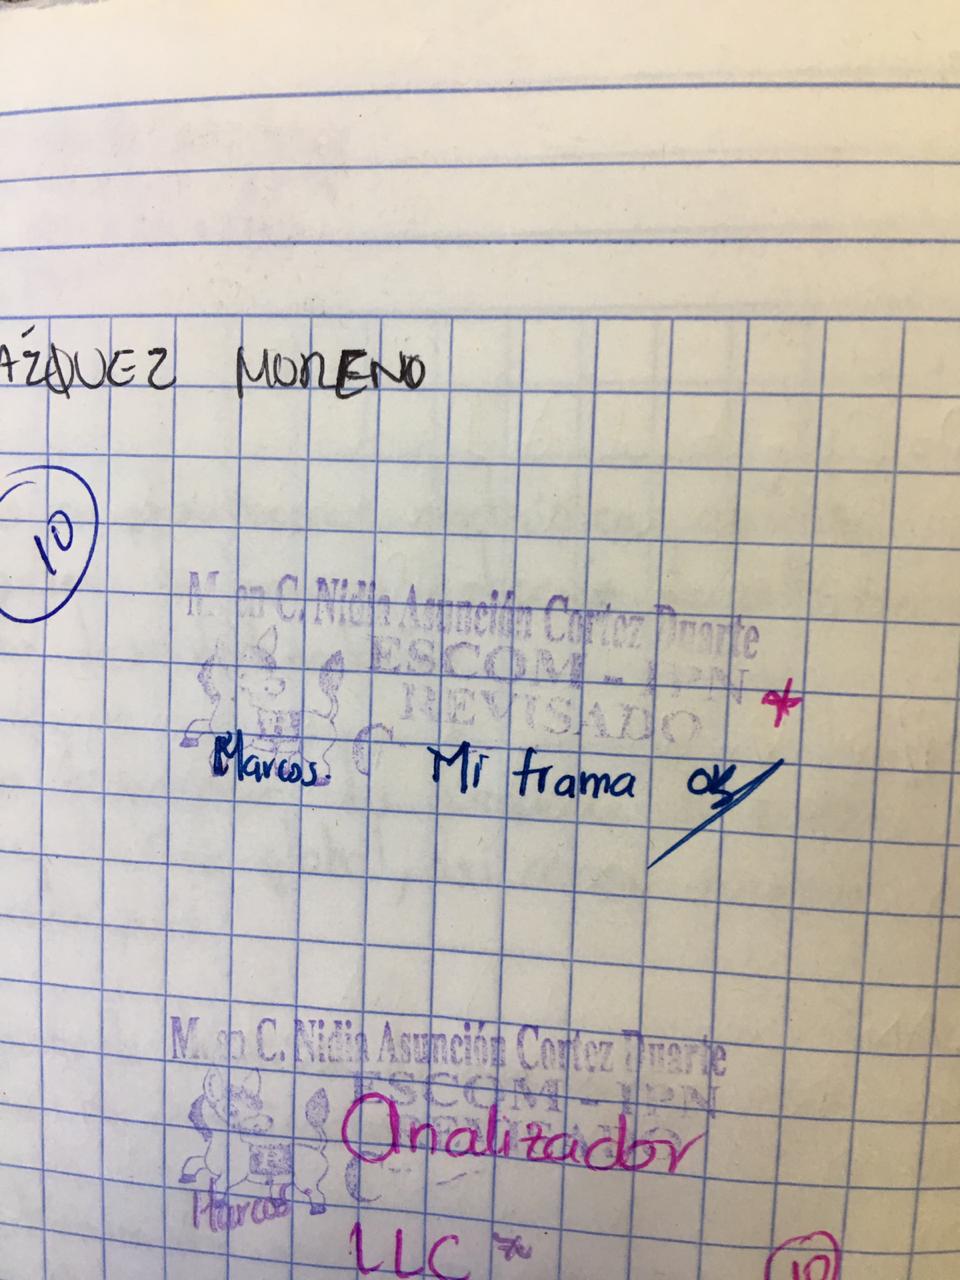 ÁZQUEZ MORENO
10
M. en C. Nidia Asunción Cortez Duarte
ESCOM - IPN
REVISADO
Marcos. Mi trama ok
M. en C. Nidia Asunción Cortez Duarte
ESCOM - IPN
REVISADO
Analizador
Marcos
LLC
10